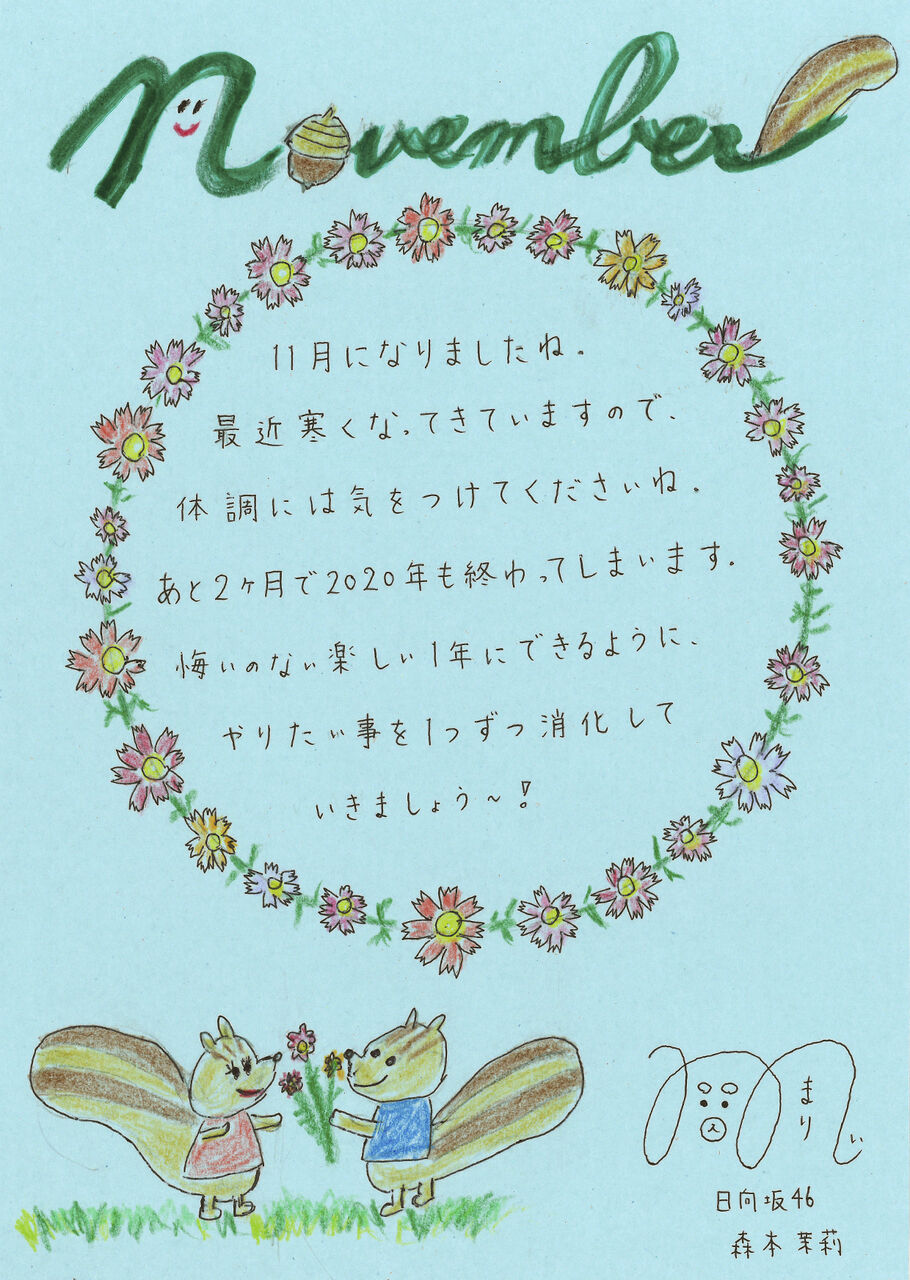 November
11月になりましたね。
最近寒くなってきていますので、
体調には気をつけてくださいね。
あと2ヶ月で2020年も終わってしまいます。
悔いのない楽しい1年にできるように、
やりたい事を1つずつ消化して
いきましょう〜!
まりぃ
日向坂46
森本茉莉